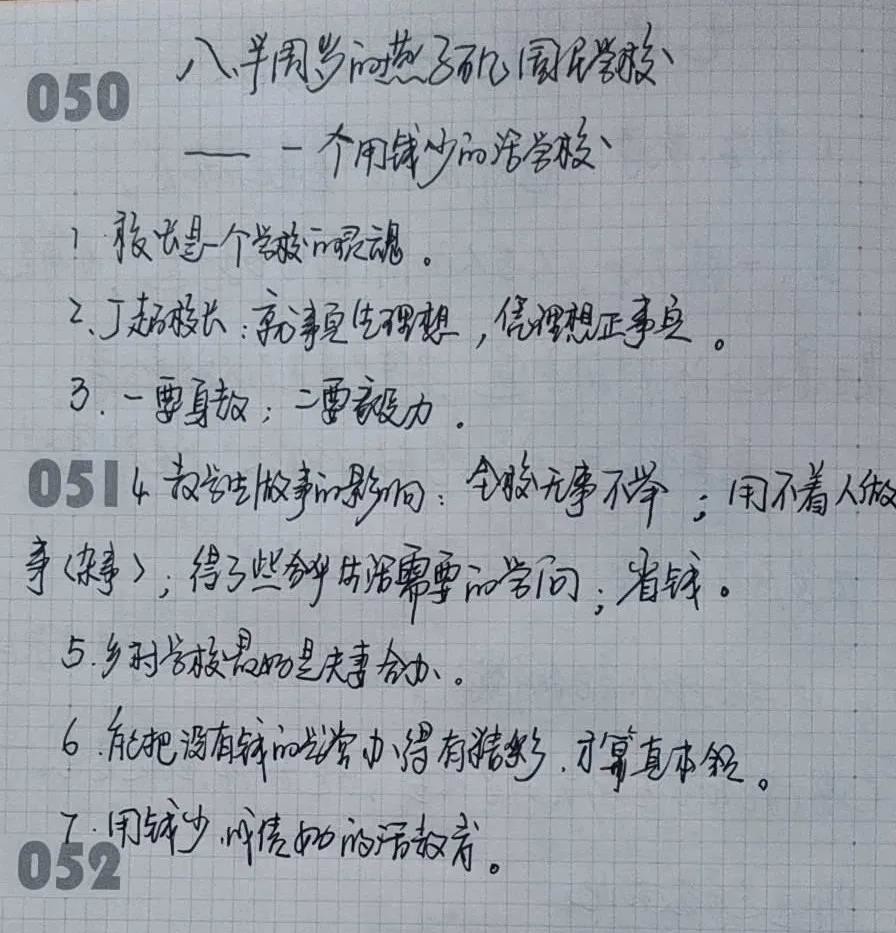 050
八、半周岁的燕子矶国民学校
—— 一个用钱少的活学校
1 校长是一个学校的灵魂。
2、丁超校长：就事实生理想，凭理想正事实。
3. 一要身教；二要毅力.
051
4 教学生做事的影响：全校无事不举；用不着人做
事（杂事）；得了些合乎生活需要的学问；省钱。
5.乡村学校最好是夫妻合办。
6.能把没有钱的学堂办得有精彩.才算真本领。
7.用钱少.成绩好的活教育。
052